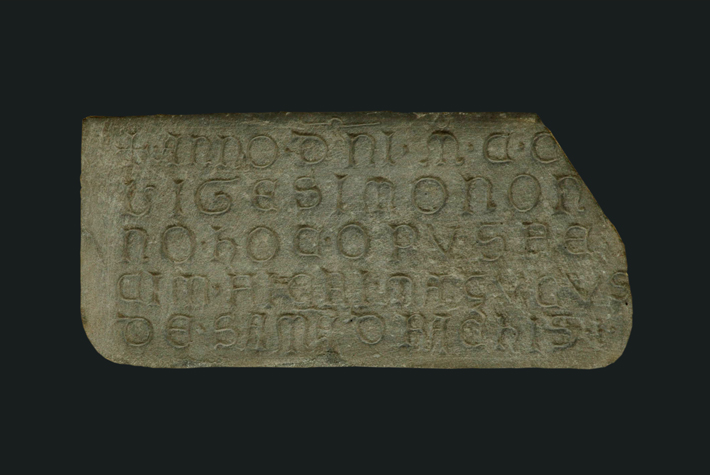 + ANNO · DNI · M · C · C
VIGESIMO NON
NO · HOC · OPVS · FE
CIM · FIERI ·
DE ·